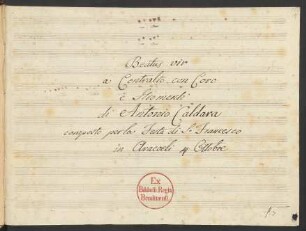 Beatus vir
a Contralto con Coro
e Stromenti
di Antonio Caldara
composto per la Festa di S. Francesco
in Aracoeli 4 Ottobre
Ex
Biblioth. Regia
Berolinensi